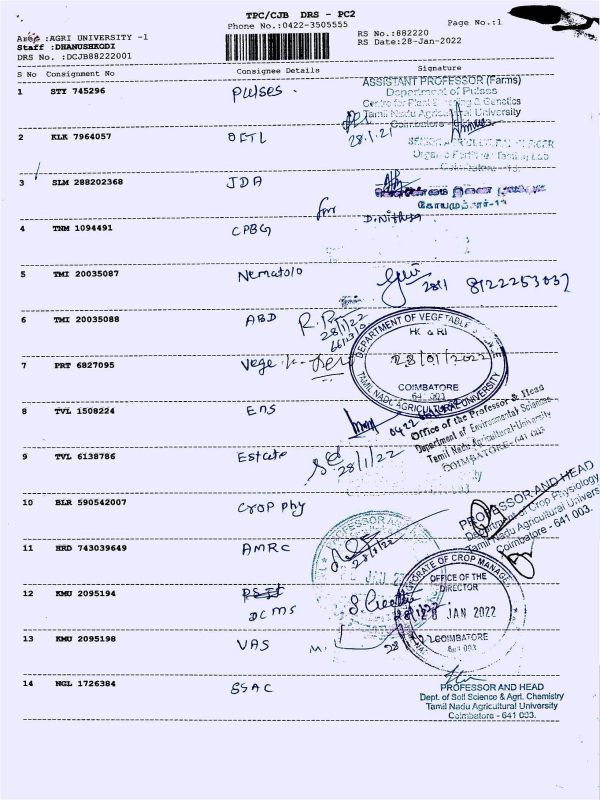 TPC/CJB DRS - PC2
Phone No.:0422-3505555
Page No.:1
Area :AGRI UNIVERSITY -1
Staff :DHANUSHKODI
DRS No. :DCJB88222001
RS No.:882220
RS Date:28-Jan-2022
S No Consignment No Consignee Details Signature
1 STY 745296 Pulses.
ASSISTANT PROFESSOR (Farms)
Department of Pulses
Centre for Plant Breeding & Genetics
Tamil Nadu Agricultural University
Coimbatore
28.1.21
2 KLK 7964057 OFTL
Organic Fertilizer Testing Lab
Coimbatore - 13.
3 SLM 288202368 JDA
கோயமுத்தூர்-13
for D.Nithya
4 TNM 1094491 CPBG
5 TMI 20035087 Nematolo
28/1 8122253037
6 TMI 20035088 ABD
28/1/22
DEPARTMENT OF VEGETABLE
HC & RI
28/01/2022
COIMBATORE
641 003
TAMIL NADU AGRICULTURAL UNIVERSITY
7 PRT 6827095 Vege
8 TVL 1508224 ENS
0422
Office of the Professor & Head
Department of Environmental Sciences
Tamil Nadu Agricultural University
COIMBATORE - 641 003
9 TVL 6138786 Estate
28/1/22
10 BLR 590542007 Crop Phy
PROFESSOR AND HEAD
Department of Crop Physiology
Tamil Nadu Agricultural University
Coimbatore - 641 003.
11 HRD 743039649 AMRC
28/1/22
PROFESSOR AND
JAN
12 KMU 2095194
DCMS
DIRECTORATE OF CROP MANAGE
OFFICE OF THE
DIRECTOR
28 JAN 2022
COIMBATORE
641 003
13 KMU 2095198 VAS
28
14 NGL 1726384 SSAC
PROFESSOR AND HEAD
Dept. of Soil Science & Agrl. Chemistry
Tamil Nadu Agricultural University
Coimbatore - 641 003.